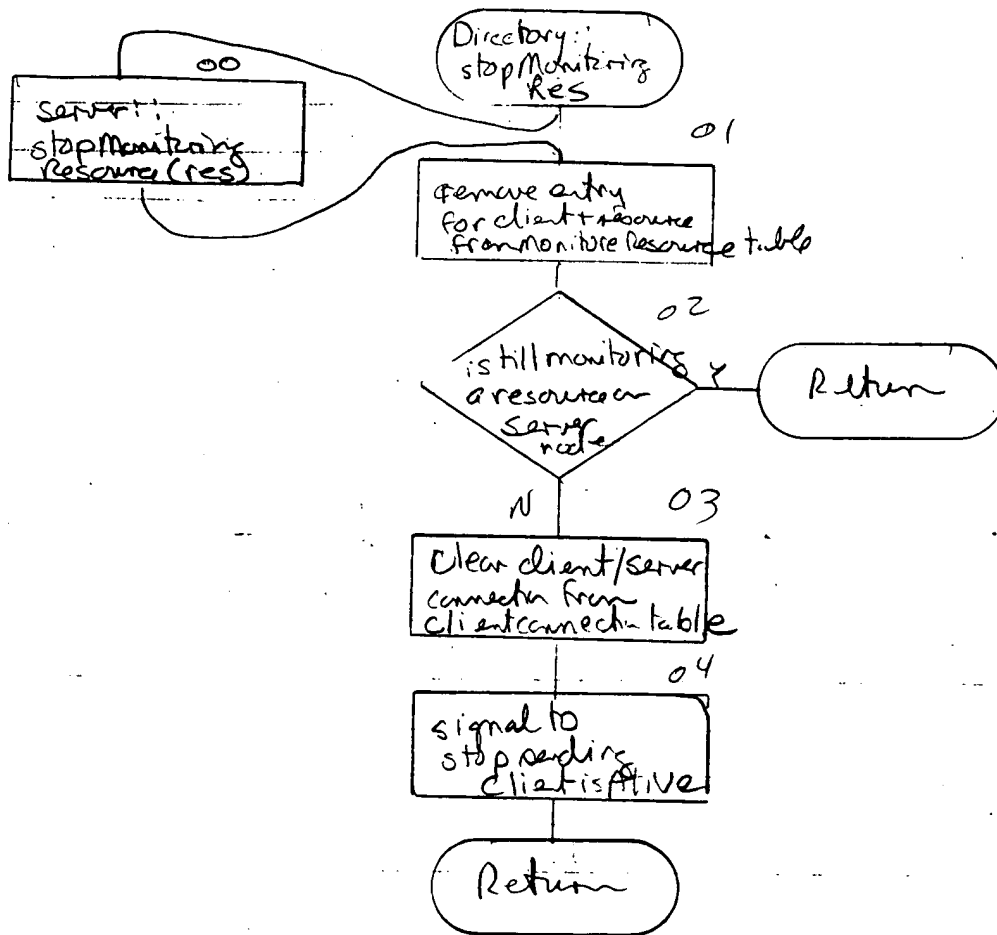 Directory::
stopMonitoring
Res
00
server::
stopMonitoring
Resource(res)
01
remove entry
for client + resource
from moniture Resource table
02
is till monitoring
a resource on
server
node
Y
Return
N
03
Clear client/server
connection from
clientconnection table
04
signal to
stop sending
ClientisAlive
Return